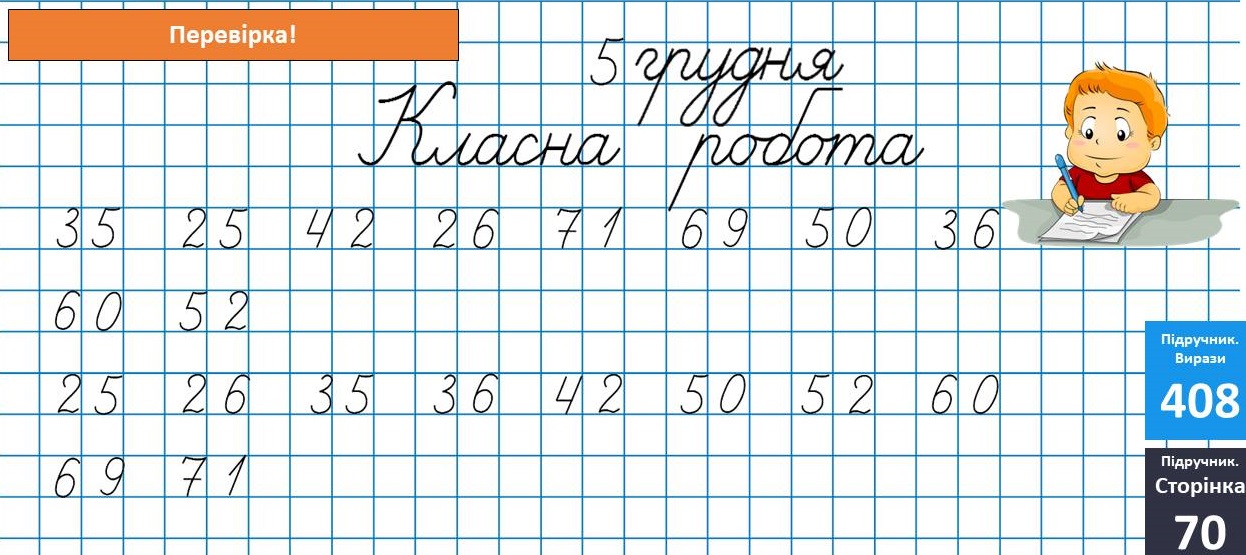 Перевірка!
5 грудня
Класна робота
35 25 42 26 71 69 50 36
60 52
25 26 35 36 42 50 52 60
69 71
Підручник.
Вирази
408
Підручник.
Сторінка
70